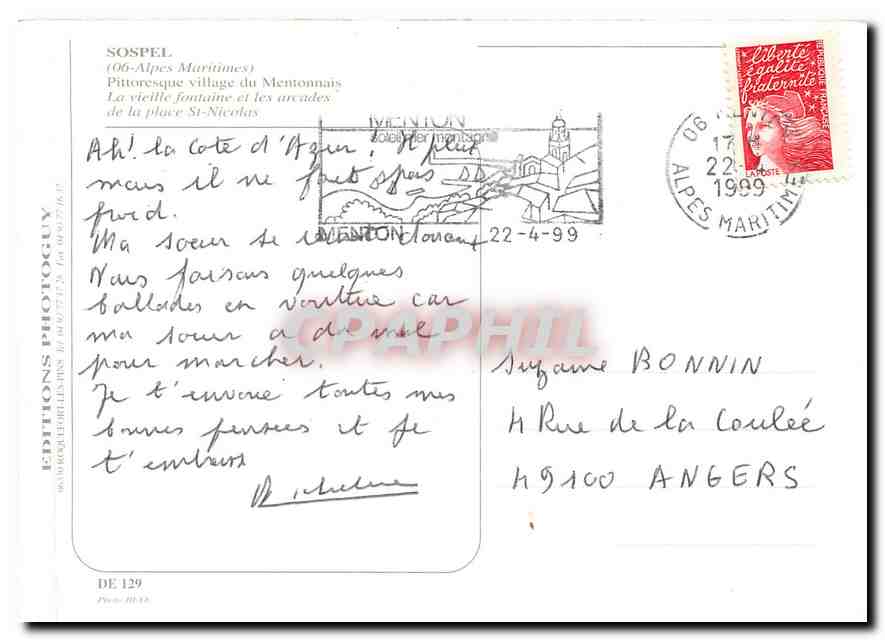 SOSPEL
(06-Alpes Maritimes)
Pittoresque village du Mentonnais
La vieille fontaine et les arcades
de la place St-Nicolas
Ah! la Cote d'Azur! Il pleut
mais il ne fait pas
froid.
Ma soeur se
Nous faisons quelques
ballades en voiture car
ma soeur a du mal
pour marcher.
Je t'envoie toutes mes
bonnes pensées et je
t'embrasse
Micheline
DE 129
EDITIONS PHOTOGUY
MENTON
soleil mer montagne
MENTON 22-4-99
liberté
égalité
fraternité
REPUBLIQUE FRANÇAISE
LA POSTE
06 MENTON
22-4
1999
ALPES MARITIMES
CPAPHIL
Suzanne BONNIN
4 Rue de la Coulée
49100 ANGERS